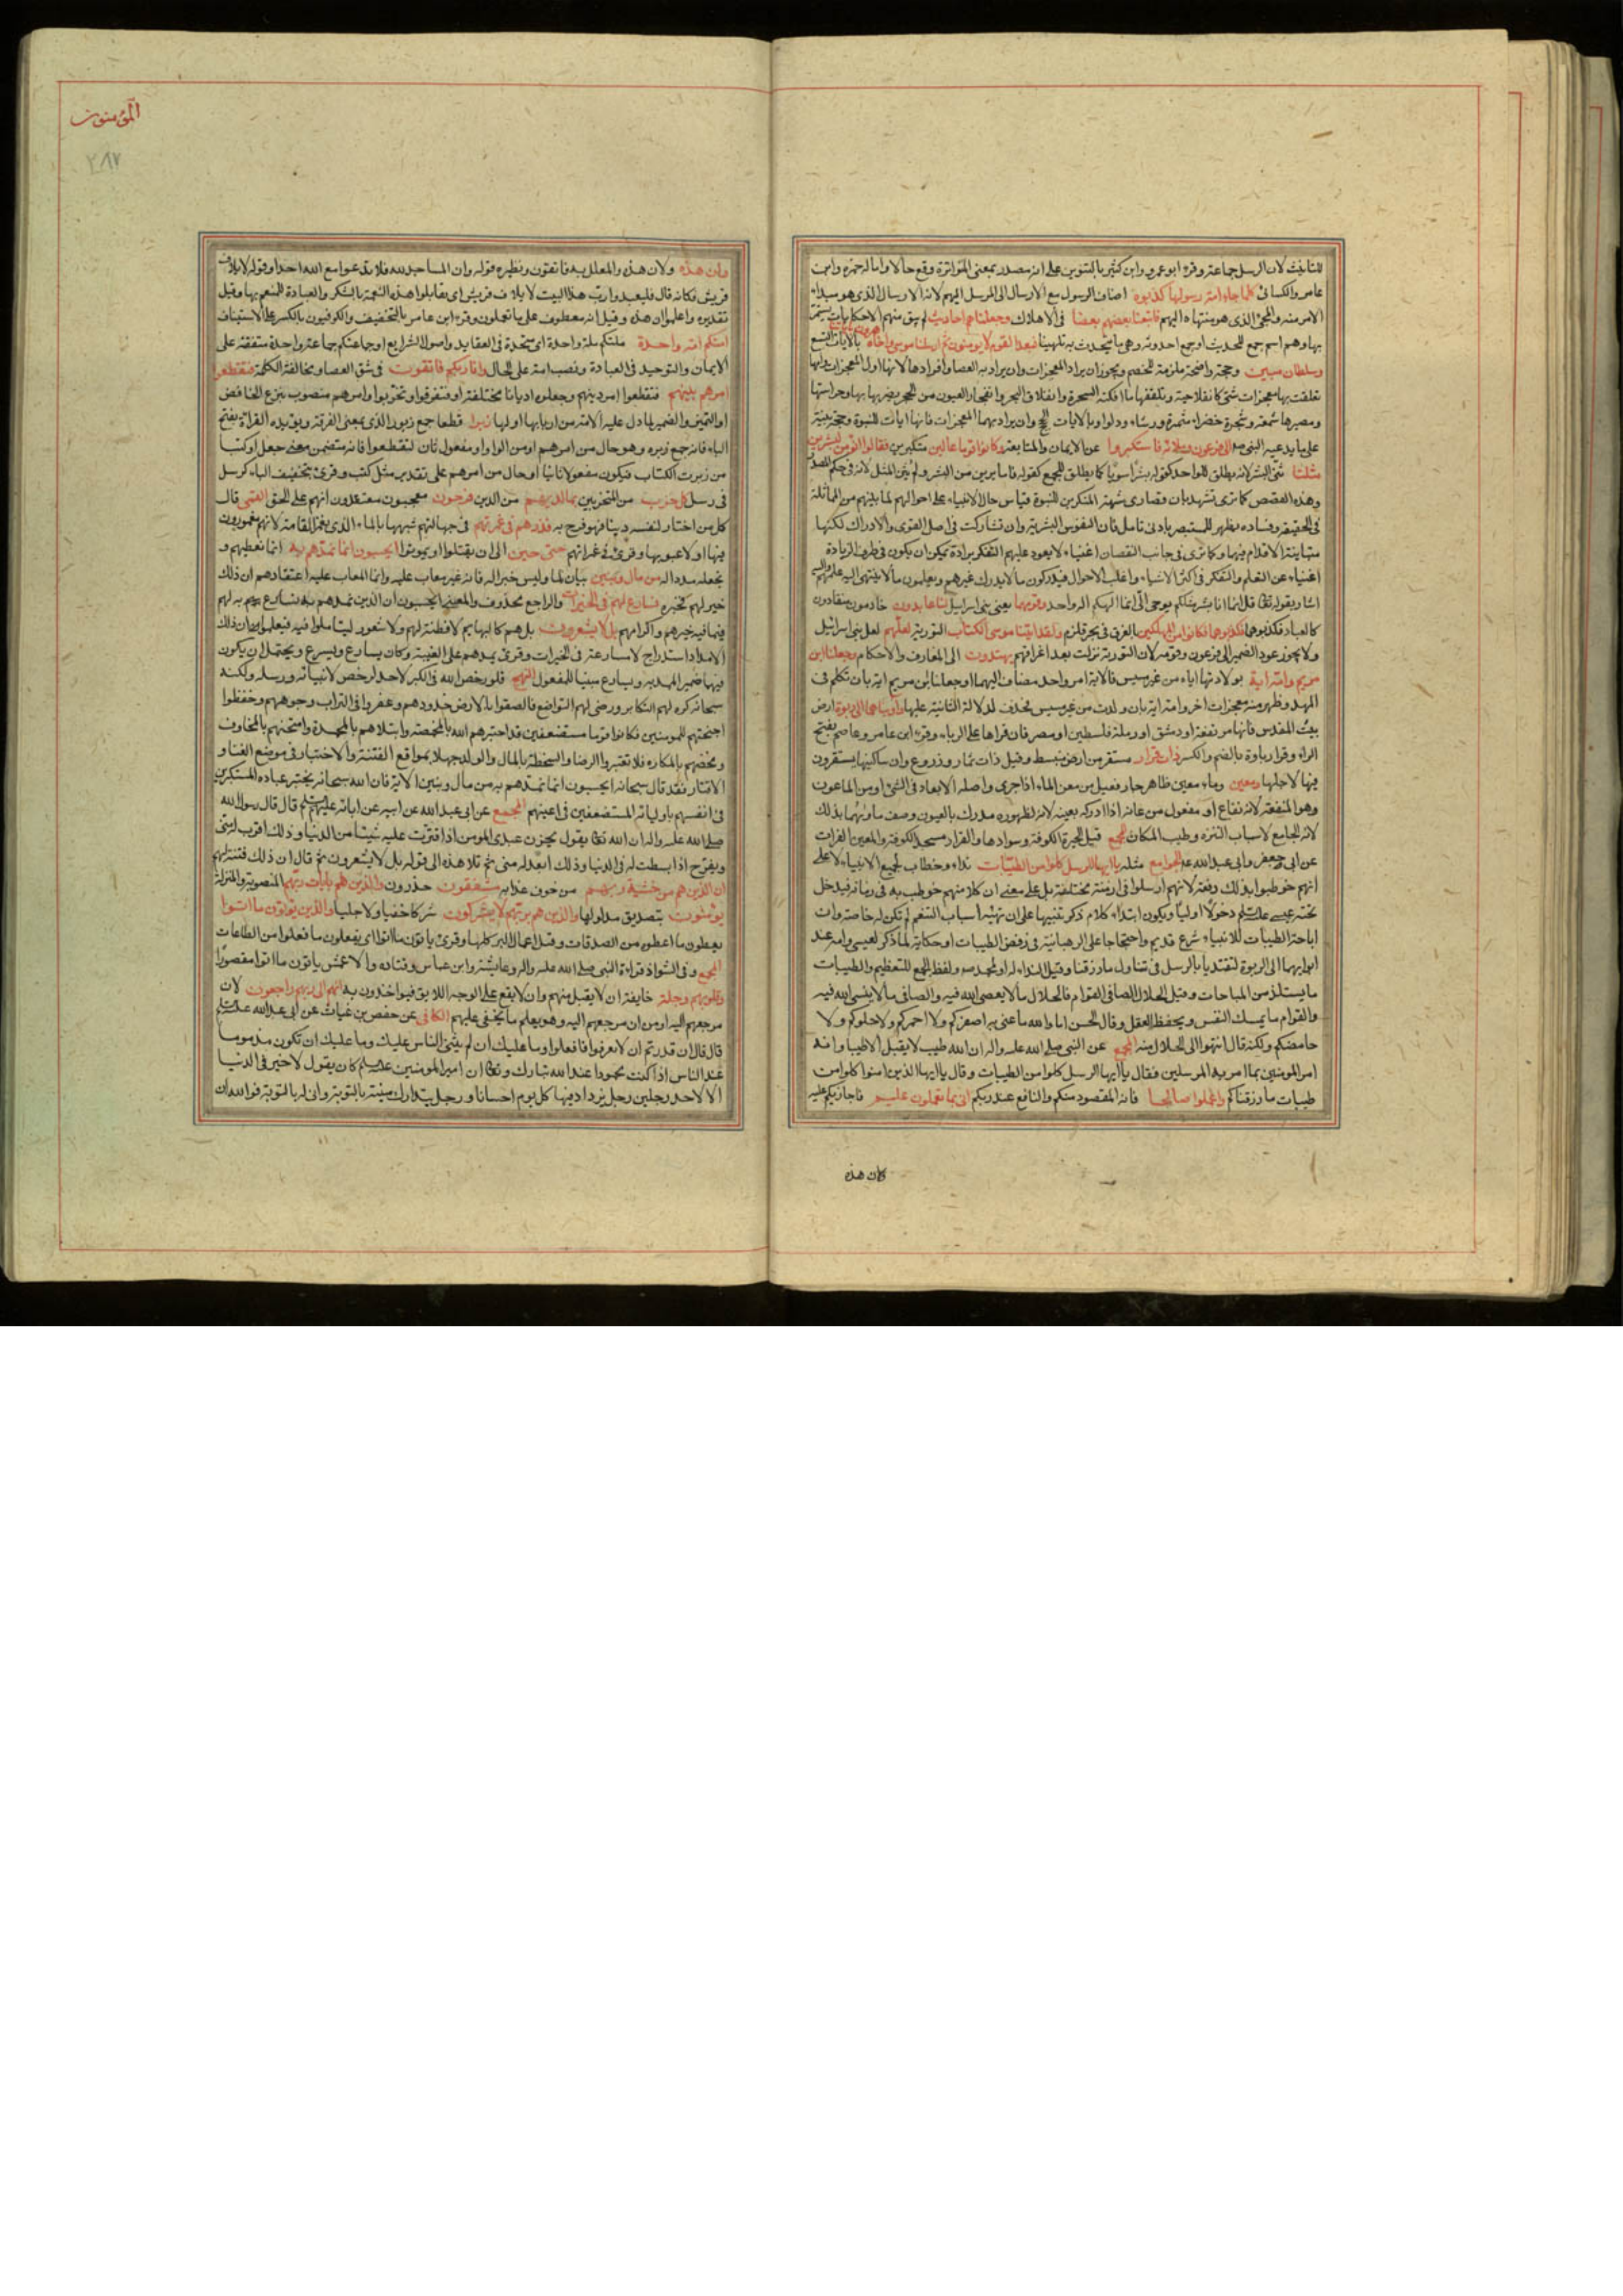 للتانيث لان الرسل جماعة وقرء ابو عمرو وابن كثير بالتنوين على انه مصدر بمعنى المواترة وقع حالا وامال حمزه وابن
عامر والكسائى كلما جاء امة رسولها كذبوه اضاف الرسول مع الارسال الى المرسل اليهم لان الارسال الذى هو مبداء
الامر منه والمجئ الذى هو منتهاه اليهم فاتبعنا بعضهم بعضا فى الاهلاك وجعلناهم احاديث لم يبق منهم الا حكايات يسمر
بها وهم اسم جمع للحديث او جمع احدوثه وهى ما يتحدث به تلهيا فبعدا لقوم لا يومنون ثم ارسلنا موسى واخاه هرون باياتنا بالايات التسع
وسلطان مبين وحجة واضحة ملزمة للخصم ويجوز ان يراد المعجزات وان يراد به العصا وافرادها لانها اول المعجزات وامها
تعلقت بها معجزات شتى كانقلابها حية وتلقفها ما افكته السحرة وانفلاق البحر وانفجار العيون من الحجر بضربها بها وحراستها
ومصيرها شمعة وشجرة خضراء مثمرة ورشاء ودلوا وبالايات الحجج وان يراد بهما المعجزات فانها ايات للنبوة وحجة بينة
على ما يدعيه النبى صلعم الى فرعون وملائه فاستكبروا عن الايمان والمتابعة وكانوا قوما عالين متكبرين فقالوا انؤمن لبشرين
مثلنا ثنى البشر لانه يطلق للواحد كقوله بشرا سويا كما يطلق للجمع كقوله فاما ترين من البشر ولم يثن المثل لانه فى حكم المصدر
وهذه القصص كما ترى تشهد بان قصارى شبهة المنكرين للنبوة قياس حال الانبياء على احوالهم لما بينهم من المماثلة
فى الحقيقة وفساده يظهر للمستبصر بادنى تامل فان النفوس البشرية وان تشاركت فى اصل القوى والادراك لكنها
متباينة الاقدام فيها وكما ترى فى جانب النقصان اغنياء لا يعود عليهم التفكر برادة يمكن ان يكون فى طرف الزيادة
اغنياء عن التعلم والتفكر فى اكثر الاشياء واغلب الاحوال فيدركون ما لا يدرك غيرهم ويعلمون ما لا ينتهى اليه علمهم واليه
اشار بقوله تعالى قل انما انا بشر مثلكم يوحى الى انما الهكم اله واحد وقومهما يعنى بنى اسرائيل لنا عابدون خادمون منقادون
كالعباد فكذبوهما فكذبوهما فكانوا من المهلكين بالغرق فى بحر قلزم ولقد اتينا موسى الكتاب التورية لعلهم لعل بنى اسرائيل
ولا يجوز عود الضمير الى فرعون وقومه لان التورية نزلت بعد اغراقهم يهتدون الى المعارف والاحكام وجعلنا ابن
مريم وامه اية بولادتها اياه من غير مسيس فالاية امر واحد مضاف اليهما او جعلنا ابن مريم اية بان تكلم فى
المهد وظهر منه معجزات اخر وامه اية بان ولدت من غير مسيس فحذف لدلالة الثانية عليها واويناهما الى ربوة ارض
بيت المقدس فانها مرتفعة او دمشق او رملة فلسطين او مصر فان قراها على الرباء وقرء ابن عامر وعاصم بفتح
الراء وقرا رباوة بالضم والكسر ذات قرار مستقر من ارض منبسط وقيل ذات ثمار وزروع وان ساكنيها يستقرون
فيها لاجلها ومعين وماء معين ظاهر جار فعيل من معن الماء اذا جرى واصله الابعاد فى الشئ او من الماعون
وهو المنفعة لانه نفاع او مفعول من عانه اذا ادركه بعينه لانه لظهوره مدرك بالعيون وصف ماؤنهما بذلك
لانه الجامع لاسباب التنزه وطيب المكان المجمع قيل الحيرة الكوفة وسوادها والقرار مسجد الكوفة والمعين الفرات
عن ابى جعفر وابى عبدالله الجوامع مثله يا ايها الرسل كلوا من الطيبات نداء وخطاب لجميع الانبياء لا على
انهم خوطبوا بذلك دفعة لانهم ارسلوا فى ازمنة مختلفة بل على معنى ان كلا منهم خوطب به فى زمانه فيدخل
تحته عيسى دخولا اوليا ويكون ابتداء كلام ذكر تنبيها على ان تهيئه اسباب التنعم لم تكن له خاصة وان
اباحة الطيبات للانبياء شرع قديم واحتجاجا على الرهبانية فى رفض الطيبات او حكاية لما ذكر لعيسى وامه عند
ايوائهما الى الربوة لتقتديا بالرسل فى تناول ما رزقنا وقيل النداء له او لمحمد ص ولفظ الجمع للتعظيم والطيبات
ما يستلذ من المباحات وقيل الحلال الصافى القوام فالحلال ما لا يعصى الله فيه والصافى ما لا ينسى الله فيه
والقوام ما يمسك النفس ويحفظ العقل وقال الحسن اما والله ما عنى به اصفركم ولا احمركم ولا حلوكم ولا
حامضكم ولكنه قال انتهوا الى الحلال منه المجمع عن النبى صلى الله عليه واله ان الله طيب لا يقبل الا طيبا وانه
امر المومنين بما امر به المرسلين فقال يا ايها الرسل كلوا من الطيبات وقال يا ايها الذين امنوا كلوا من
طيبات ما رزقناكم واعملوا صالحا فانه المقصود منكم والنافع عند ربكم انى بما تعملون عليم فاجازيكم عليه
المؤمنون
٢٨٧
وان هذه ولان هذه والمعلل به فاتقون ونظيره قوله وان المساجد لله فلا تدعوا مع الله احدا وقوله لايلاف
قريش فكانه قال فليعبدوا رب هذا البيت لايلاف قريش اى يقابلوا هذه النعمة بالشكر والعبادة للمنعم بها وقيل
تقديره واعلموا ان هذه وقيل انه معطوف على ما تعملون وقرء ابن عامر بالتخفيف والكوفيون بالكسر على الاستيناف
امتكم امة واحدة ملتكم ملة واحدة اى متحدة فى العقايد واصول الشرايع او جماعتكم جماعة واحدة متفقة على
الايمان والتوحيد فى العبادة ونصب امة على الحال وانا ربكم فاتقون فى شق العصا ومخالفة الكلمة فتقطعوا
امرهم بينهم فتقطعوا امر دينهم وجعلوه اديانا مختلفة او فتفرقوا وتحزبوا وامرهم منصوب بنزع الخافض
او التميز والضمير لما دل عليه الامة من اربابها او لها زبرا قطعا جمع زبور الذى بمعنى الفرقة ويؤيده القراة بفتح
الباء فانه جمع زبره وهو حال من امرهم او من الواو او مفعول ثان لتقطعوا فانه متضمن معنى جعل او كتبا
من زبرت الكتاب فيكون مفعولا ثانيا او حال من امرهم على تقدير مثل كتب وقرئ بتخفيف الباء كرسل
فى رسل كل حزب من المتحزبين بما لديهم من الدين فرحون معجبون معتقدون انهم على الحق القمى قال
كل من اختار لنفسه دينا فهو فرح به فذرهم فى غمرتهم فى جهالتهم شبهها بالماء الذى يغمر القامة لانهم مغمورون
فيها او لاعبو بها وقرئ فى غمراتهم حتى حين الى ان يقتلوا او يموتوا ايحسبون انما نمدهم به انما نعطيهم و
نجعله مددا له من مال وبنين بيان لما وليس خبرا له فانه غير معاب عليه وانما المعاب عليه اعتقادهم ان ذلك
خير لهم فخبره نسارع لهم فى الخيرات والراجع محذوف والمعنى ايحسبون ان الذين نمدهم به نسارع به لهم
فيما فيه خيرهم واكرامهم بل لا يشعرون بل هم كالبهايم لا فطنة لهم ولا شعور ليتاملوا فيه فيعلموا ان ذلك
الامداد استدراج لا مسارعة فى الخيرات وقرئ يمدهم على الغيبة وكان يسارع ويسرع ويحتمل ان يكون
فيها ضمير الممد به ويسارع مبنيا للمفعول النهج فلو رخص الله فى الكبر لاحد لرخص لانبيائه ورسله ولكنه
سبحانه كره لهم التكابر ورضى لهم التواضع فالصقوا بالارض خدودهم وعفروا فى التراب وجوههم وخفظوا
اجنحتهم للمومنين فكانوا قوما مستضعفين قد اختبرهم الله بالمخمصة وابتلاهم بالمجهدة وامتحنهم بالمخاوف
ومخضهم بالمكاره فلا تعتبروا الرضا والسخطة بالمال والولد جهلا بمواقع الفتنة والاختبار فى موضع الغنا و
الاقتار فقد قال سبحانه ايحسبون انما نمدهم به من مال وبنين الاية فان الله سبحانه يختبر عباده المستكبرين
فى انفسهم باوليائه المستضعفين فى اعينهم المجمع عن ابى عبد الله عن ابيه عن ابائه قال قال رسول الله
صلى الله عليه واله ان الله تعالى يقول يحزن عبدى المومن اذا قترت عليه شيئا من الدنيا وذلك اقرب له منى
ويفرح اذا بسطت له فى الدنيا وذلك ابعد له منى ثم تلا هذه الى قوله بل لا يشعرون ثم قال ان ذلك فتنة لهم
ان الذين هم من خشية ربهم من خوف عذابه مشفقون حذرون والذين هم بايات ربهم المنصوبة والمنزلة
يومنون بتصديق مدلولها والذين هم بربهم لا يشركون شركا خفيا ولا جليا والذين يؤتون ما اتوا
يعطون ما اعطوه من الصدقات وقيل اعمال البر كلها وقرئ ياتون ما اتوا اى يفعلون ما فعلوا من الطاعات
المجمع وفى الشواذ قراءة النبى صلى الله عليه واله وعايشة وابن عباس وقتاده والاعمش ياتون ما اتوا مقصورا
وقلوبهم وجلة خايفة ان لا يقبل منهم وان لا يقع على الوجه اللايق فيواخذون به انهم الى ربهم راجعون لان
مرجعهم اليه او من ان مرجعهم اليه وهو يعلم ما يخفى عليهم الكافى عن حفص بن غياث عن ابى عبد الله
قال قال ان قدرتم ان لا تعرفوا فافعلوا وما عليك ان لم يثن الناس عليك وما عليك ان تكون مذموما
عند الناس اذا كنت محمودا عند الله تبارك وتعالى ان امير المومنين كان يقول لا خير فى الدنيا
الا لاحد رجلين رجل يزداد فيها كل يوم احسانا ورجل يتدارك منيته بالتوبة وانى له بالتوبة فوالله ان